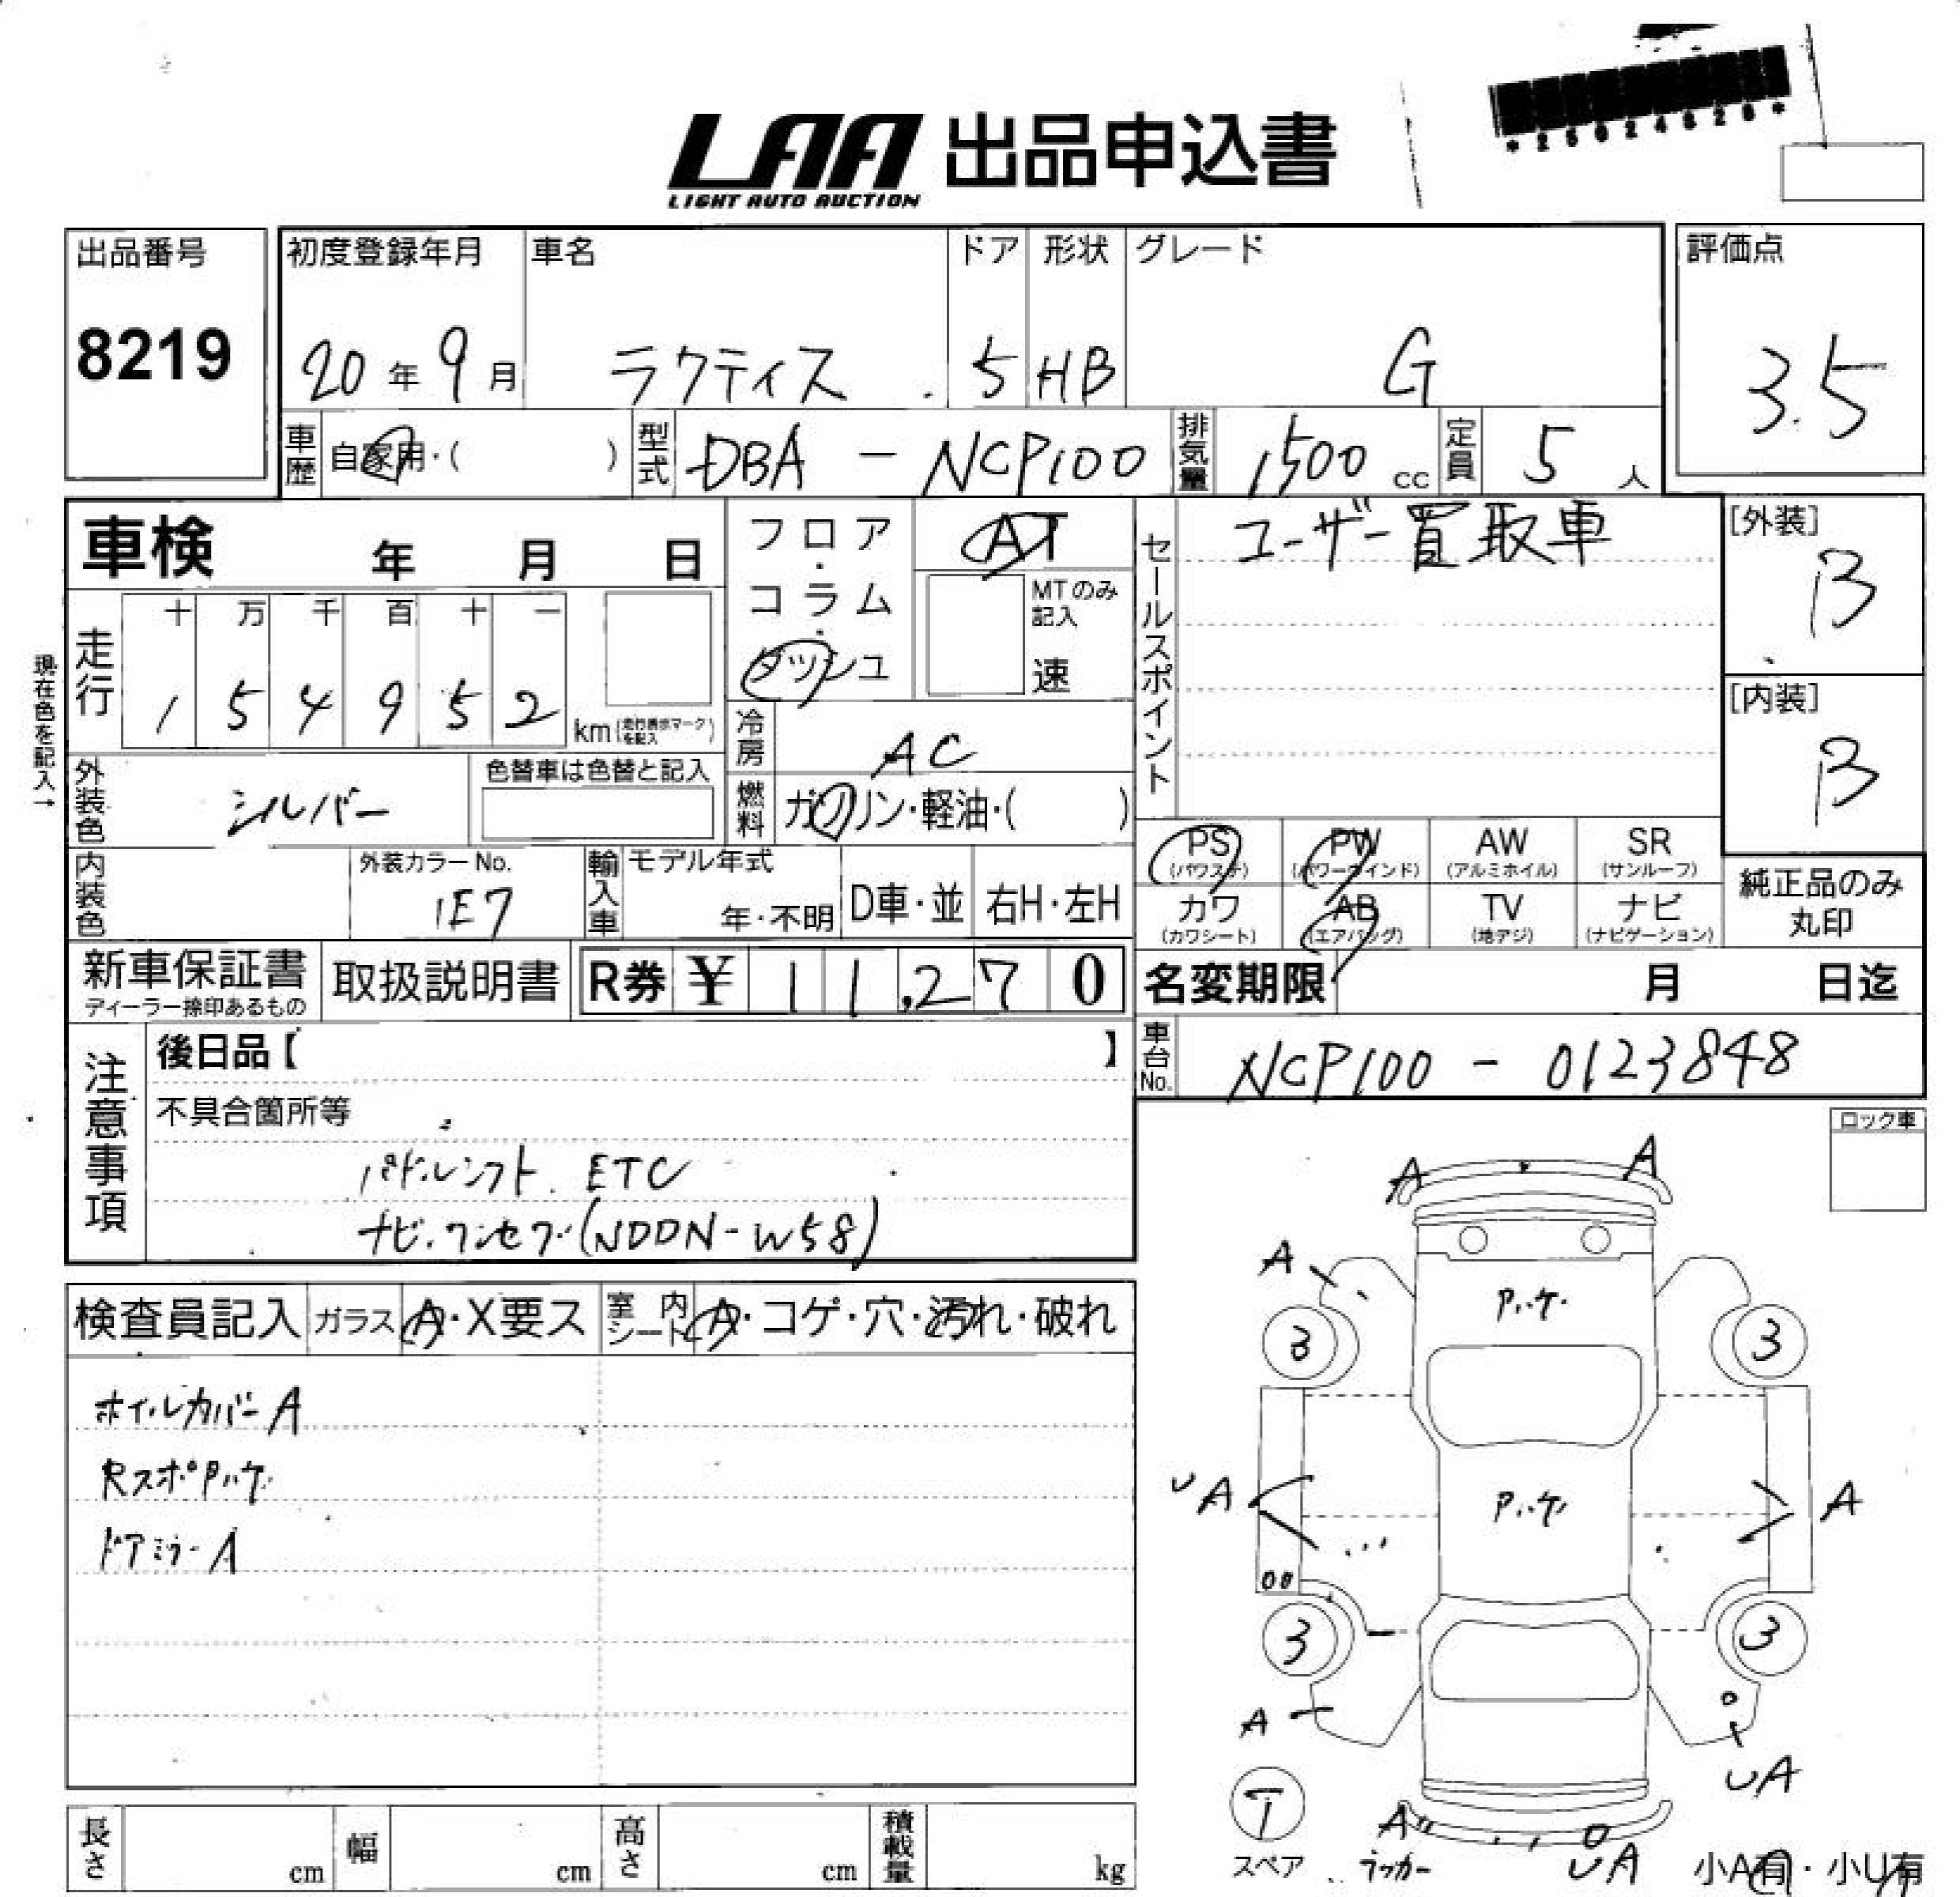 LAA 出品申込書
LIGHT AUTO AUCTION
出品番号
8219
初度登録年月
20年9月
車名
ラクティス
ドア
5
形状
HB
グレード
G
評価点
3.5
車歴
自家用・( )
型式
DBA - NCP100
排気量
1,500 cc
定員
5 人
車検 年 月 日
フロア・コラム・ダッシュ
AT
MTのみ記入
速
セールスポイント
ユーザー買取車
[外装]
B
[内装]
B
現在色を記入→
走行
十 万 千 百 十 一
1 5 4 9 5 2
km (走行表示マークを記入)
冷房
AC
燃料
ガソリン・軽油・( )
外装色
シルバー
色替車は色替と記入
内装色
外装カラーNo.
1E7
輸入車
モデル年式
年・不明
D車・並
右H・左H
PS (パワステ)
PW (パワーウインド)
AW (アルミホイル)
SR (サンルーフ)
カワ (カワシート)
AB (エアバッグ)
TV (地デジ)
ナビ (ナビゲーション)
純正品のみ
丸印
新車保証書
ディーラー捺印あるもの
取扱説明書
R券 ¥ 11,270
名変期限 月 日迄
車台No.
NCP100 - 0123848
注意事項
後日品【 】
不具合箇所等
パドルシフト. ETC
ナビ.ワンセグ(NDDN-W58)
ロック車
検査員記入
ガラス A・X要ス
室内シート A・コゲ・穴・汚れ・破れ
ホイルカバーA
Rスポアハゲ
ドアミラーA
A A
A
アハゲ
3 3
UA
アハゲ
A
3 3
A
UA
1
スペア
A
ラッカー
UA
小A有・小U有
長さ cm
幅 cm
高さ cm
積載量 kg